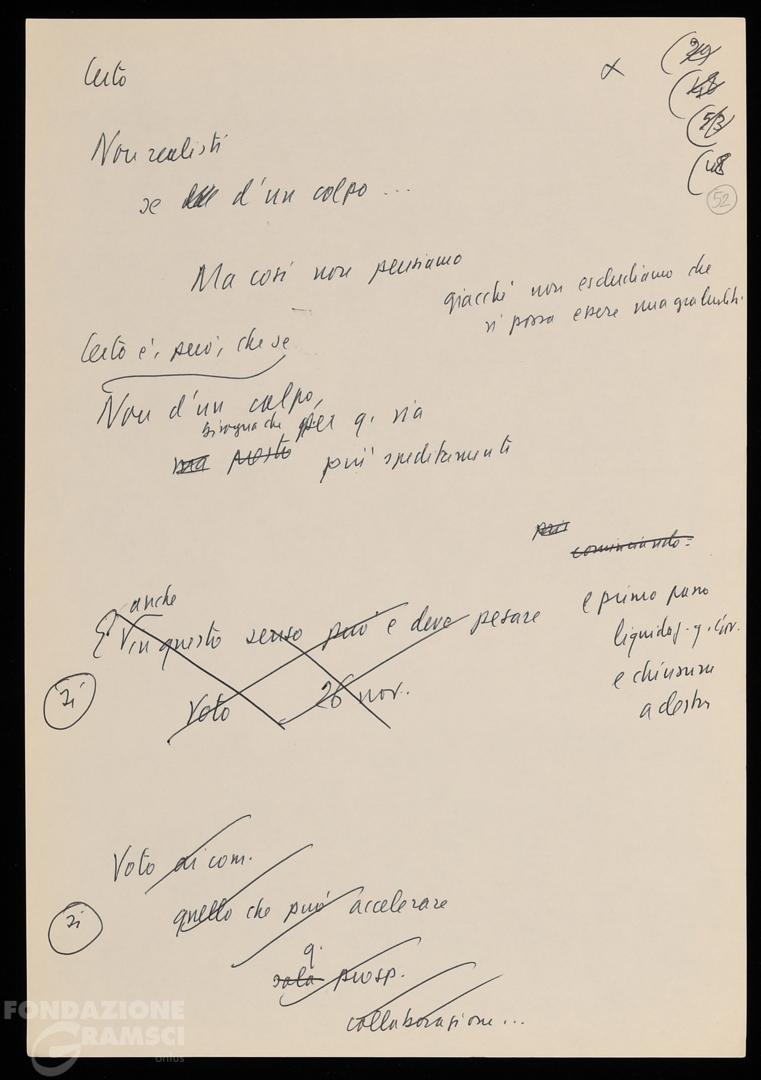 Certo
Non realisti
se d'un colpo...
Ma così non pensiamo
giacché non escludiamo che
vi possa essere una gradualità.
Certo è, però, che se
Non d'un colpo,
bisogna che per q. via
ma presto più speditamente
più
cominciando:
e primo passo
liquidaz. q. Gov.
e chiusura
a destra
anche
E in questo senso può e deve pesare
Voto 26 nov.
Voto di com.
quello che può accelerare
q.
sola prosp.
collaborazione...
52
FONDAZIONE
GRAMSCI
onlus